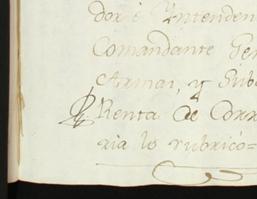 dor è Yntenden
Comandante Gen
Armas, y Sub
Renta de Corr
ria lo rubricó=